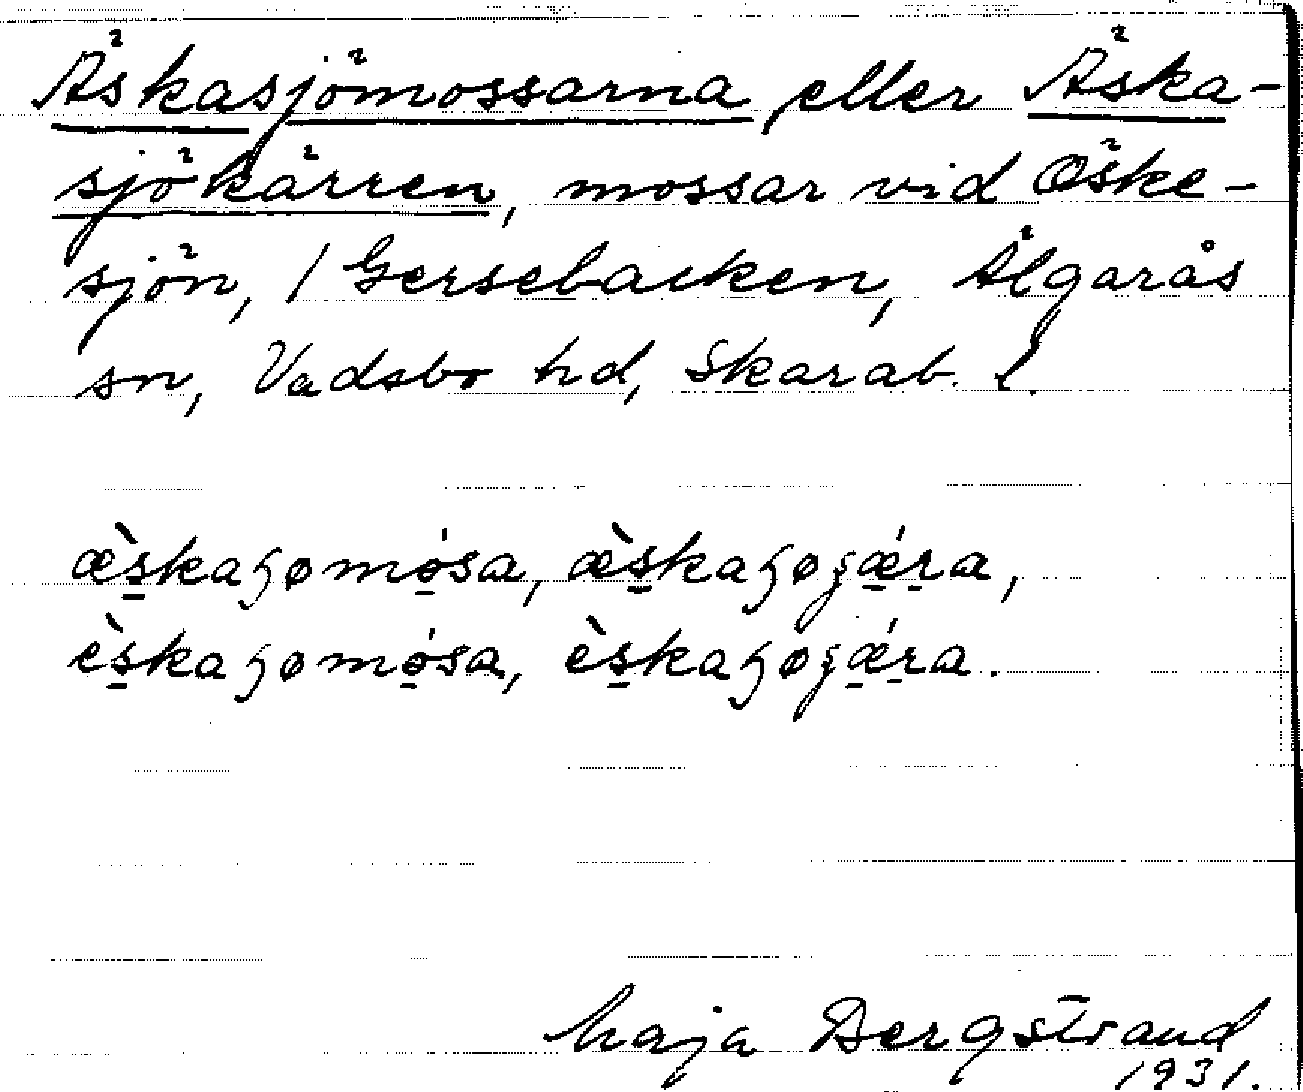 Äskasjömossarna eller Äska-
sjökärren, mossar vid Öske-
sjön, / Gersebacken, Älgarås
sn, Vadsbo hd, Skarab. l.
æ̀s̠kaɧømó̠sa, æ̀s̠kaɧøʝǽ̠r̠a,
ès̠kaɧømó̠sa, ès̠kaɧøʝǽ̠r̠a.
Maja Bergstrand
1931.